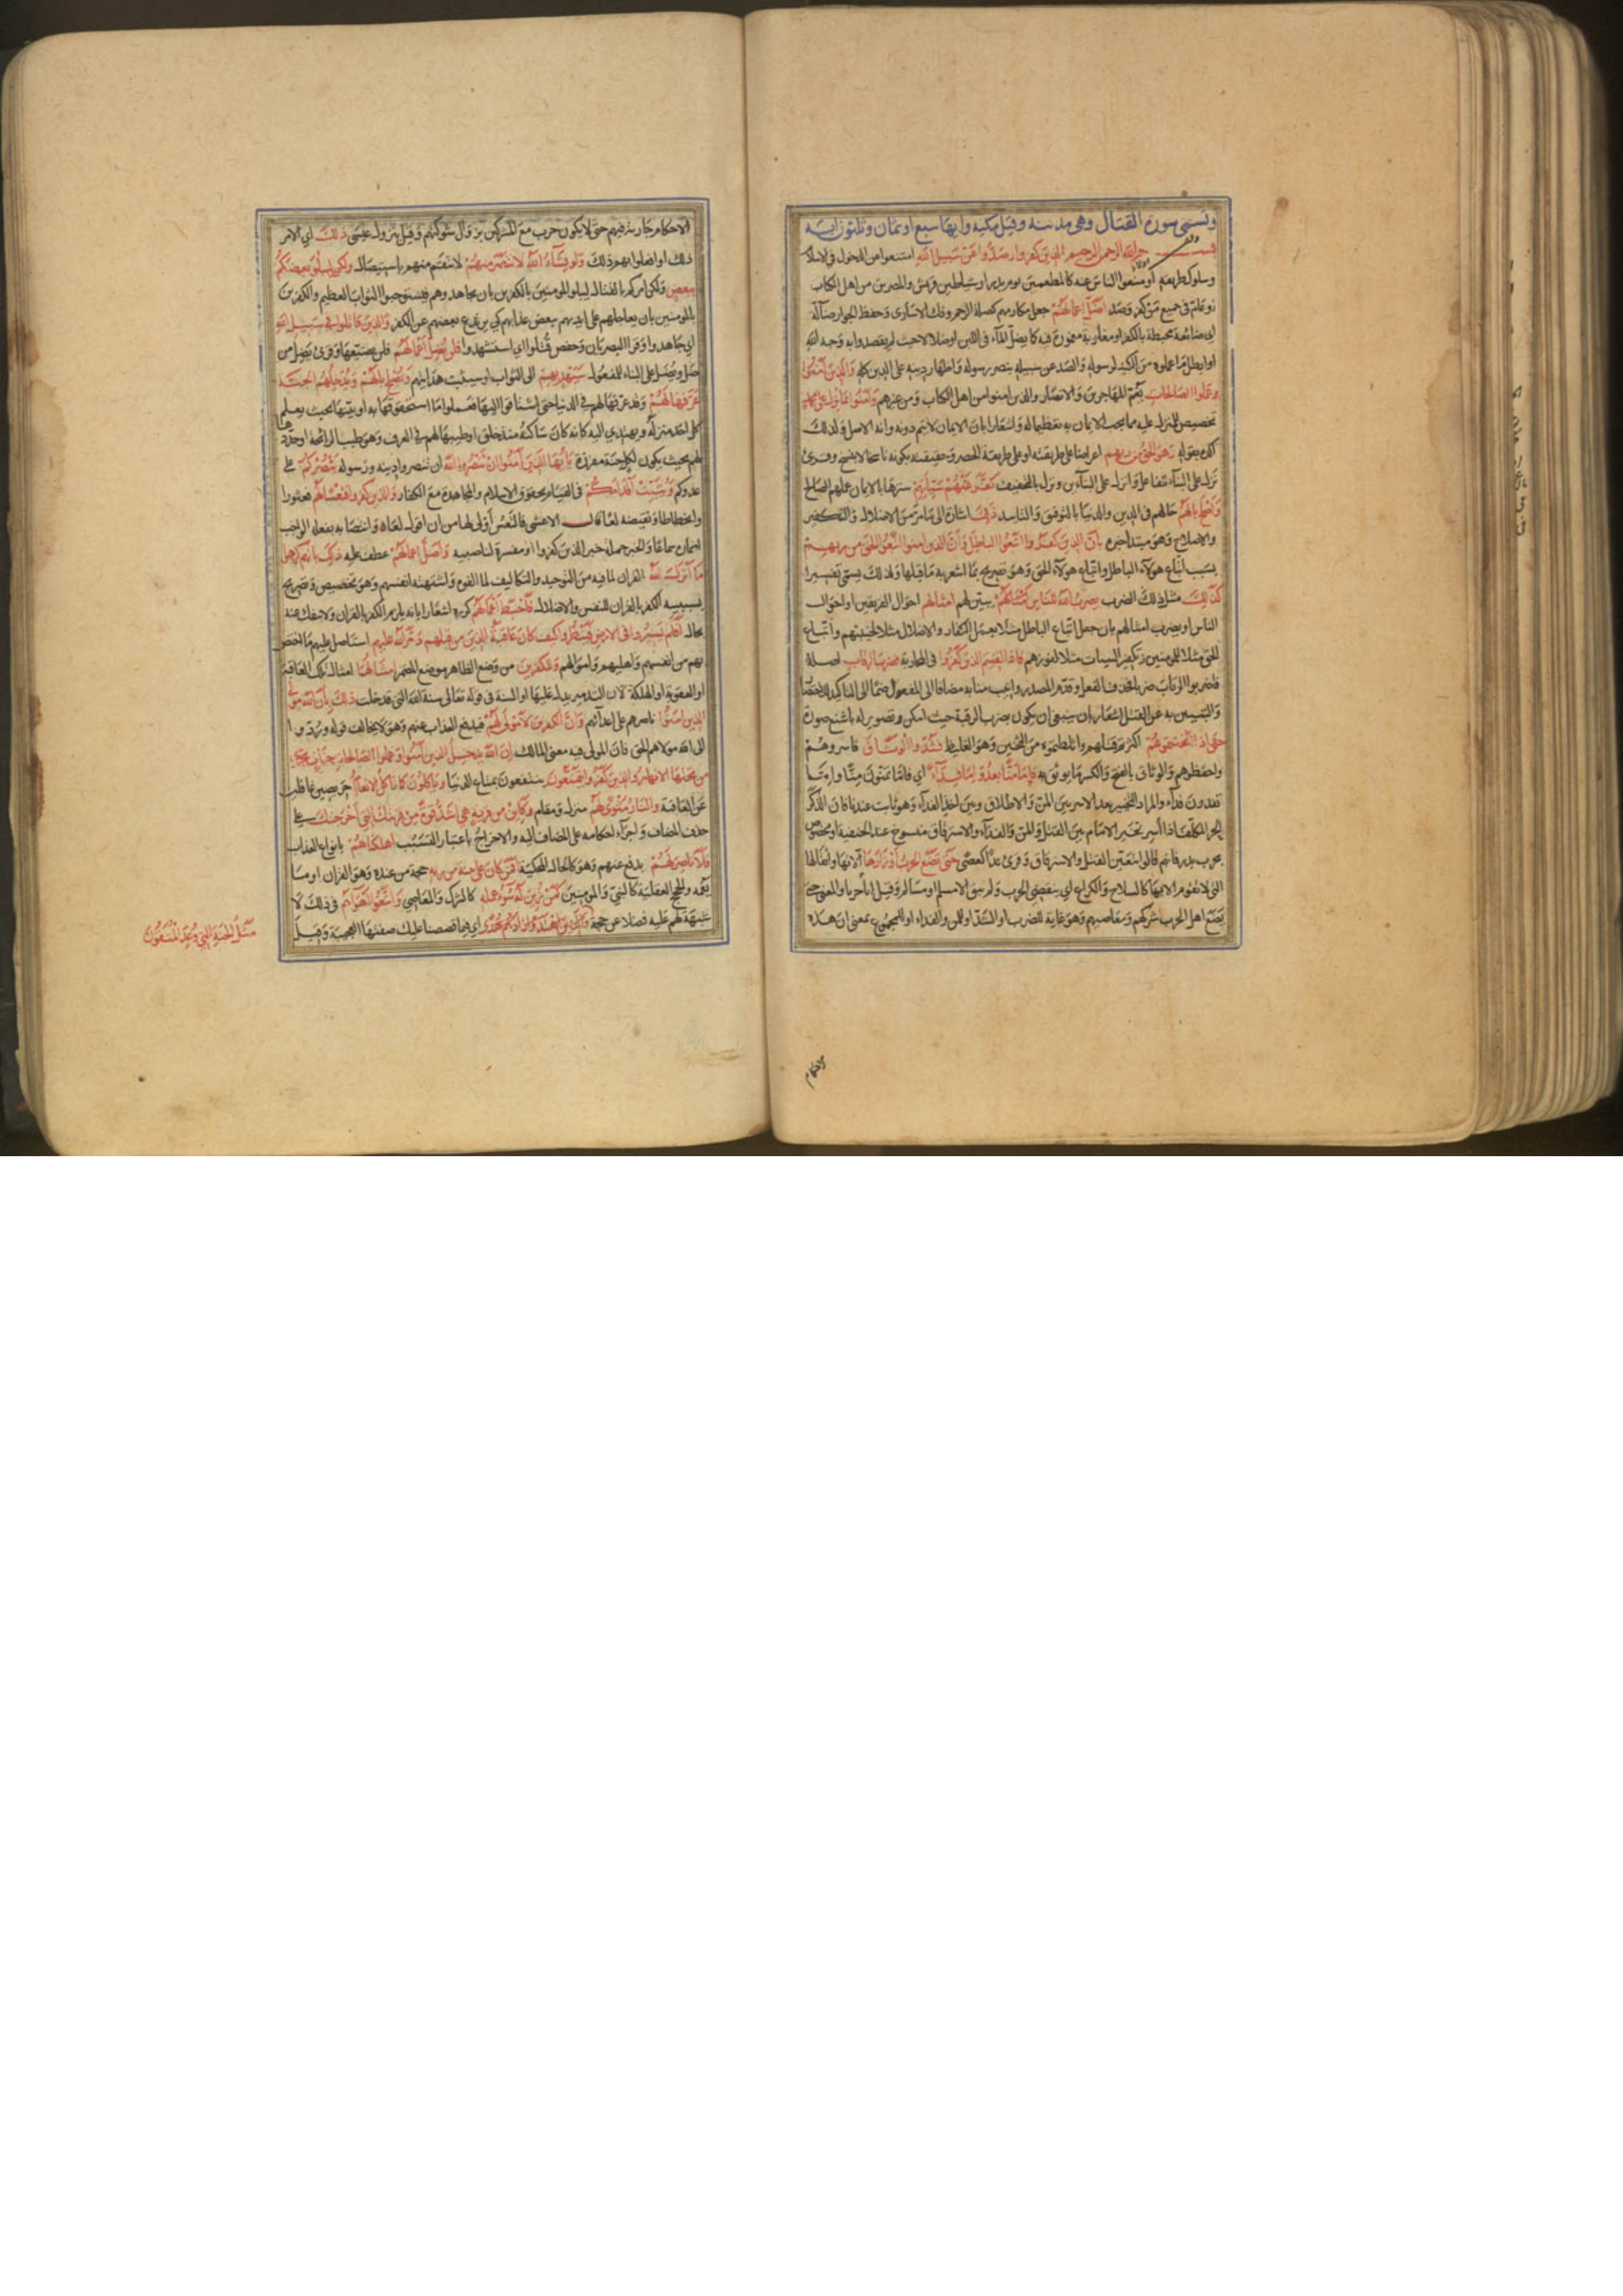 وتسمى سورة القتال وهى مدنية وقيل مكية وايها سبع او ثمان وثلثون اية
بسم الله الرحمن الرحيم الذين كفروا وصدوا عن سبيل الله امتنعوا عن الدخول فى الاسلام
وسلوك طريقه او منعوا الناس عنه كالمطعمين يوم بدر او شياطين قريش والمصرين من اهل الكتاب
او عام فى جميع من كفر وصد اضل اعمالهم جعل مكارمهم كصلة الرحم وفك الاسارى وحفظ الجوار ضالة
اى ضائعة محبطة بالكفر او مغلوبة مغمورة فيه كما يضل الماء فى اللبن او ضلالا حيث لم يقصدوا به وجه الله
او ابطل ما عملوه من الكيد لرسوله والصد عن سبيله بنصر رسوله واظهار دينه على الدين كله والذين امنوا
وعملوا الصالحات يعم المهاجرين والانصار والذين امنوا من اهل الكتاب ومن غيرهم وآمنوا بما نزل على محمد
تخصيص للمنزل عليه مما يجب الايمان به تعظيما له واشعارا بان الايمان لا يتم دونه وانه الاصل ولذلك
اكده بقوله وهو الحق من ربهم اعتراضا على طريقته او على طريقة الحصر وحقيقته بكونه ناسخا لا ينسخ وقرئ
نزل على البناء للفاعل وانزل على البناءين ونزل بالتخفيف كفر عنهم سيئاتهم سترها بالايمان وعملهم الصالح
واصلح بالهم حالهم فى الدين والدنيا بالتوفيق والتاييد ذلك اشارة الى ما مر من الاضلال والتكفير
والاصلاح وهو مبتدأ خبره بان الذين كفروا اتبعوا الباطل وان الذين امنوا اتبعوا الحق من ربهم
بسبب اتباع هولاء الباطل واتباع هولاء الحق وهو تصريح بما اشعر به ما قبلها ولذلك يسمى تفسيرا
كذلك مثل ذلك الضرب يضرب الله للناس امثالهم يبين لهم امثالهم احوال الفريقين او احوال
الناس او يضرب امثالهم بان جعل اتباع الباطل مثلا لعمل الكفار والاضلال مثلا لخيبتهم واتباع
الحق مثلا للمومنين وتكفير السيات مثلا لفوزهم فاذا لقيتم الذين كفروا فى المحاربة فضرب الرقاب اصله
فاضربوا الرقاب ضربا فحذف الفعل وقدم المصدر وانيب منابه مضافا الى المفعول ضما الى التاكيد الاختصار
والتعبير به عن القتل اشعار بان ينبغى ان يكون بضرب الرقبة حيث امكن وتصوير له باشنع صورة
حتى اذا اثخنتموهم اكثرتم قتلهم واغلظتموه من الثخين وهو الغليظ فشدوا الوثاق فاسروهم
واحفظوهم والوثاق بالفتح والكسر ما يوثق به فاما منا بعد واما فداء اى فاما تمنون منا واما
تفدون فداء والمراد التخيير بعد الاسر بين المن والاطلاق وبين اخذ الفداء وهو ثابت عندنا فان الذكر
الحر المكلف اذا اسر تخير الامام بين القتل والمن والفداء والاسترقاق منسوخ عند الحنفية او مخصوص
بحرب بدر فانهم قالوا بتعين القتل والاسترقاق وقرئ فدا كعصى حتى تضع الحرب اوزارها آلاتها واثقالها
التى لا تقوم الا بها كالسلاح والكراع اى ينقضى الحرب ولم يبق الا مسلم او مسالم وقيل اثامها والمعنى حتى
يضع اهل الحرب شركهم ومعاصيهم وهو غاية للضرب او الشد او للمن والفداء او للمجموع بمعنى ان هذه
الاحكام
الاحكام جارية فيهم حتى لا يكون حرب مع المشركين بزوال شوكتهم وقيل بنزول عيسى ذلك اى الامر
ذلك او افعلوا بهم ذلك ولو يشاء الله لانتصر منهم لانتقم منهم باستيصال ولكن ليبلو بعضكم
ببعض ولكن امركم بالقتال ليبلو المومنين بالكفرين بان يجاهدوهم فيستوجبوا الثواب العظيم والكفرين
بالمومنين بان يعاجلهم على ايديهم ببعض عذابهم كى يرتدع بعضهم عن الكفر والذين قاتلوا فى سبيل الله
اى جاهدوا وقرا البصريان وحفص قتلوا اى استشهدوا فلن يضل اعمالهم فلن يضيعها وقرئ يضل من
ضل ويضل على البناء للمفعول سيهديهم الى الثواب او سيثبت هدايتهم ويصلح بالهم ويدخلهم الجنة
عرفها لهم وقد عرفها لهم فى الدنيا حتى اشتاقوا اليها فعملوا ما استحقوها به او بينها بحيث يعلم
كل احد منزله ويهتدى اليه كانه كان ساكنه منذ خلق او طيبها لهم من العرف وهو طيب الرائحة او حددها
لهم بحيث يكون لكل جنة مفرزة يا ايها الذين آمنوا ان تنصروا الله ان تنصروا دينه ورسوله ينصركم على
عدوكم ويثبت اقدامكم فى القيام بحقوق الاسلام والمجاهدة مع الكفار والذين كفروا فتعسا لهم فعثورا
وانحطاطا ونقيضه لعا قال الاعشى فالتعس اولى لها من ان اقول لعا وانتصابه بفعله الواجب
اضماره سماعا والجملة خبر الذين كفروا او مفسرة لناصبه واضل اعمالهم عطف عليه ذلك بانهم كرهوا
ما انزل الله القران لما فيه من التوحيد والتكاليف لما الفوه واشتهته انفسهم وهو تخصيص وتصريح
بسببية الكفر بالقران للتعس والاضلال فاحبط اعمالهم كرره اشعارا بانه يلزم الكفر بالقران ولا ينفك عنه
بحال افلم يسيروا فى الارض فينظروا كيف كان عاقبة الذين من قبلهم دمر الله عليهم استاصل عليهم ما اختص
بهم من انفسهم واهليهم واموالهم وللكفرين من وضع الظاهر موضع المضمر امثالها امثال تلك العاقبة
او العقوبة او الهلكة لان التدمير يدل عليها او السنة فى قوله تعالى سنة الله التى قد خلت ذلك بان الله مولى
الذين امنوا ناصرهم على اعدائهم وان الكفرين لا مولى لهم فيدفع العذاب عنهم وهو لا يخالف قوله وردوا
الى الله مولاهم الحق فان المولى فيه بمعنى المالك ان الله يدخل الذين آمنوا وعملوا الصالحات جنات تجرى
من تحتها الانهار والذين كفروا يتمتعون ينتفعون بمتاع الدنيا وياكلون كما تاكل الانعام حريصين غافلين
عن العاقبة والنار مثوى لهم منزل ومقام وكاين من قرية هى اشد قوة من قريتك التى اخرجتك على
حذف المضاف واجراء احكامه على المضاف اليه والاخراج باعتبار التسبب اهلكناهم بانواع العذاب
فلا ناصر لهم يدفع عنهم وهو كالحال المحكية افمن كان على بينة من ربه حجة من عنده وهو القران او ما
يعمه والحجج العقلية كالنبى والمومنين كمن زين له سوء عمله كالشرك والمعاصى واتبعوا اهواءهم فى ذلك لا
شبهة لهم عليه فضلا عن حجة اى فيما قصصنا عليك صفتها العجيبة وقيل
مثل الجنة التى وعد المتقون